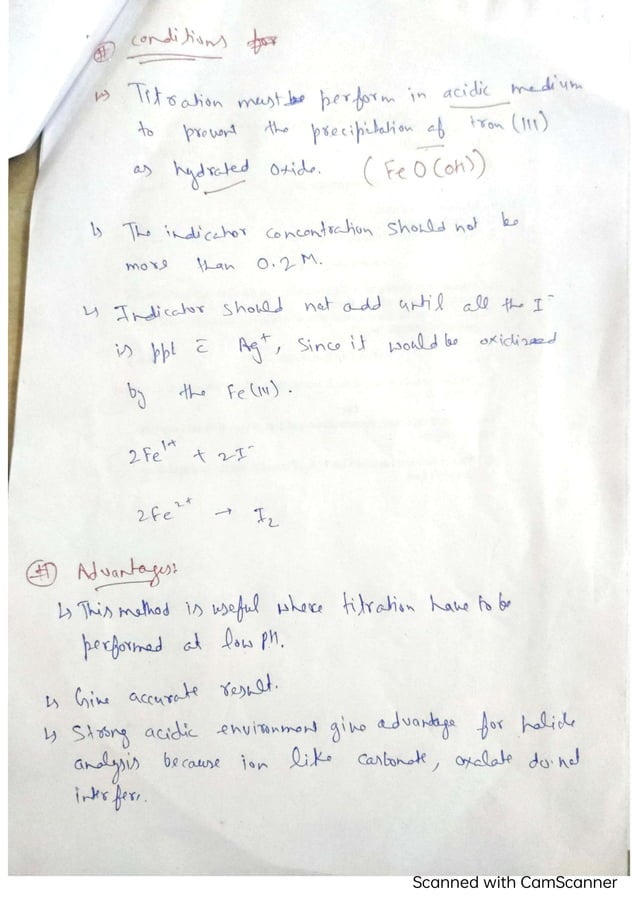 # conditions for
↳ Titration must be perform in acidic medium
to prevent the precipitation of iron (III)
as hydrated oxide. (FeO(OH))
↳ The indicator concentration should not be
more than 0.2 M.
↳ Indicator should not add until all the I⁻
is ppt c̄ Ag⁺, since it would be oxidized
by the Fe(III).
2Fe³⁺ + 2I⁻
2Fe²⁺ → I₂
# Advantages:
↳ This method is useful where titration have to be
performed at low pH.
↳ Give accurate result.
↳ Strong acidic environment give advantage for halide
analysis because ion like carbonate, oxalate do not
interfer.
Scanned with CamScanner